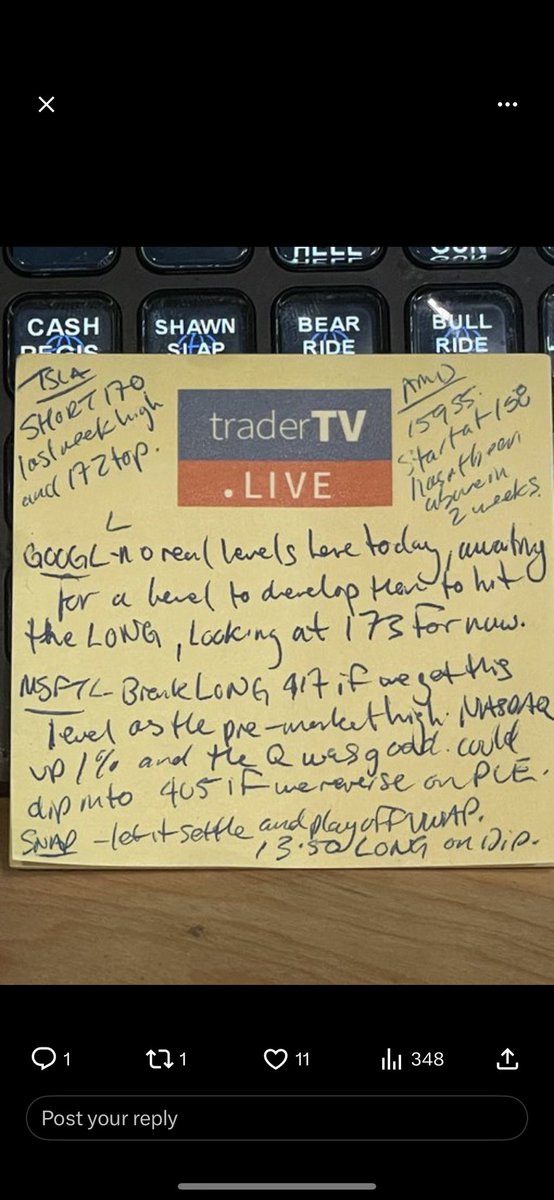 HELL
GUN
CASH
REGIS
SHAWN
SLAP
BEAR
RIDE
BULL
RIDE
TSLA
SHORT 170
last week high
and 172 top.
AMD
159 55.
Start at 158
hasnt been
above in
2 weeks.
traderTV
.LIVE
L
GOOGL - no real levels here today, awaiting
for a level to develop then to hit
the LONG, Looking at 173 for now.
MSFT L - Break LONG 417 if we get this
level as the pre-market high. NASDAQ
up 1% and the Q was good. could
dip into 405 if we reverse on PCE.
SNAP - let it settle and play off VWAP.
13.50 LONG on Dip.
1
1
11
348
Post your reply